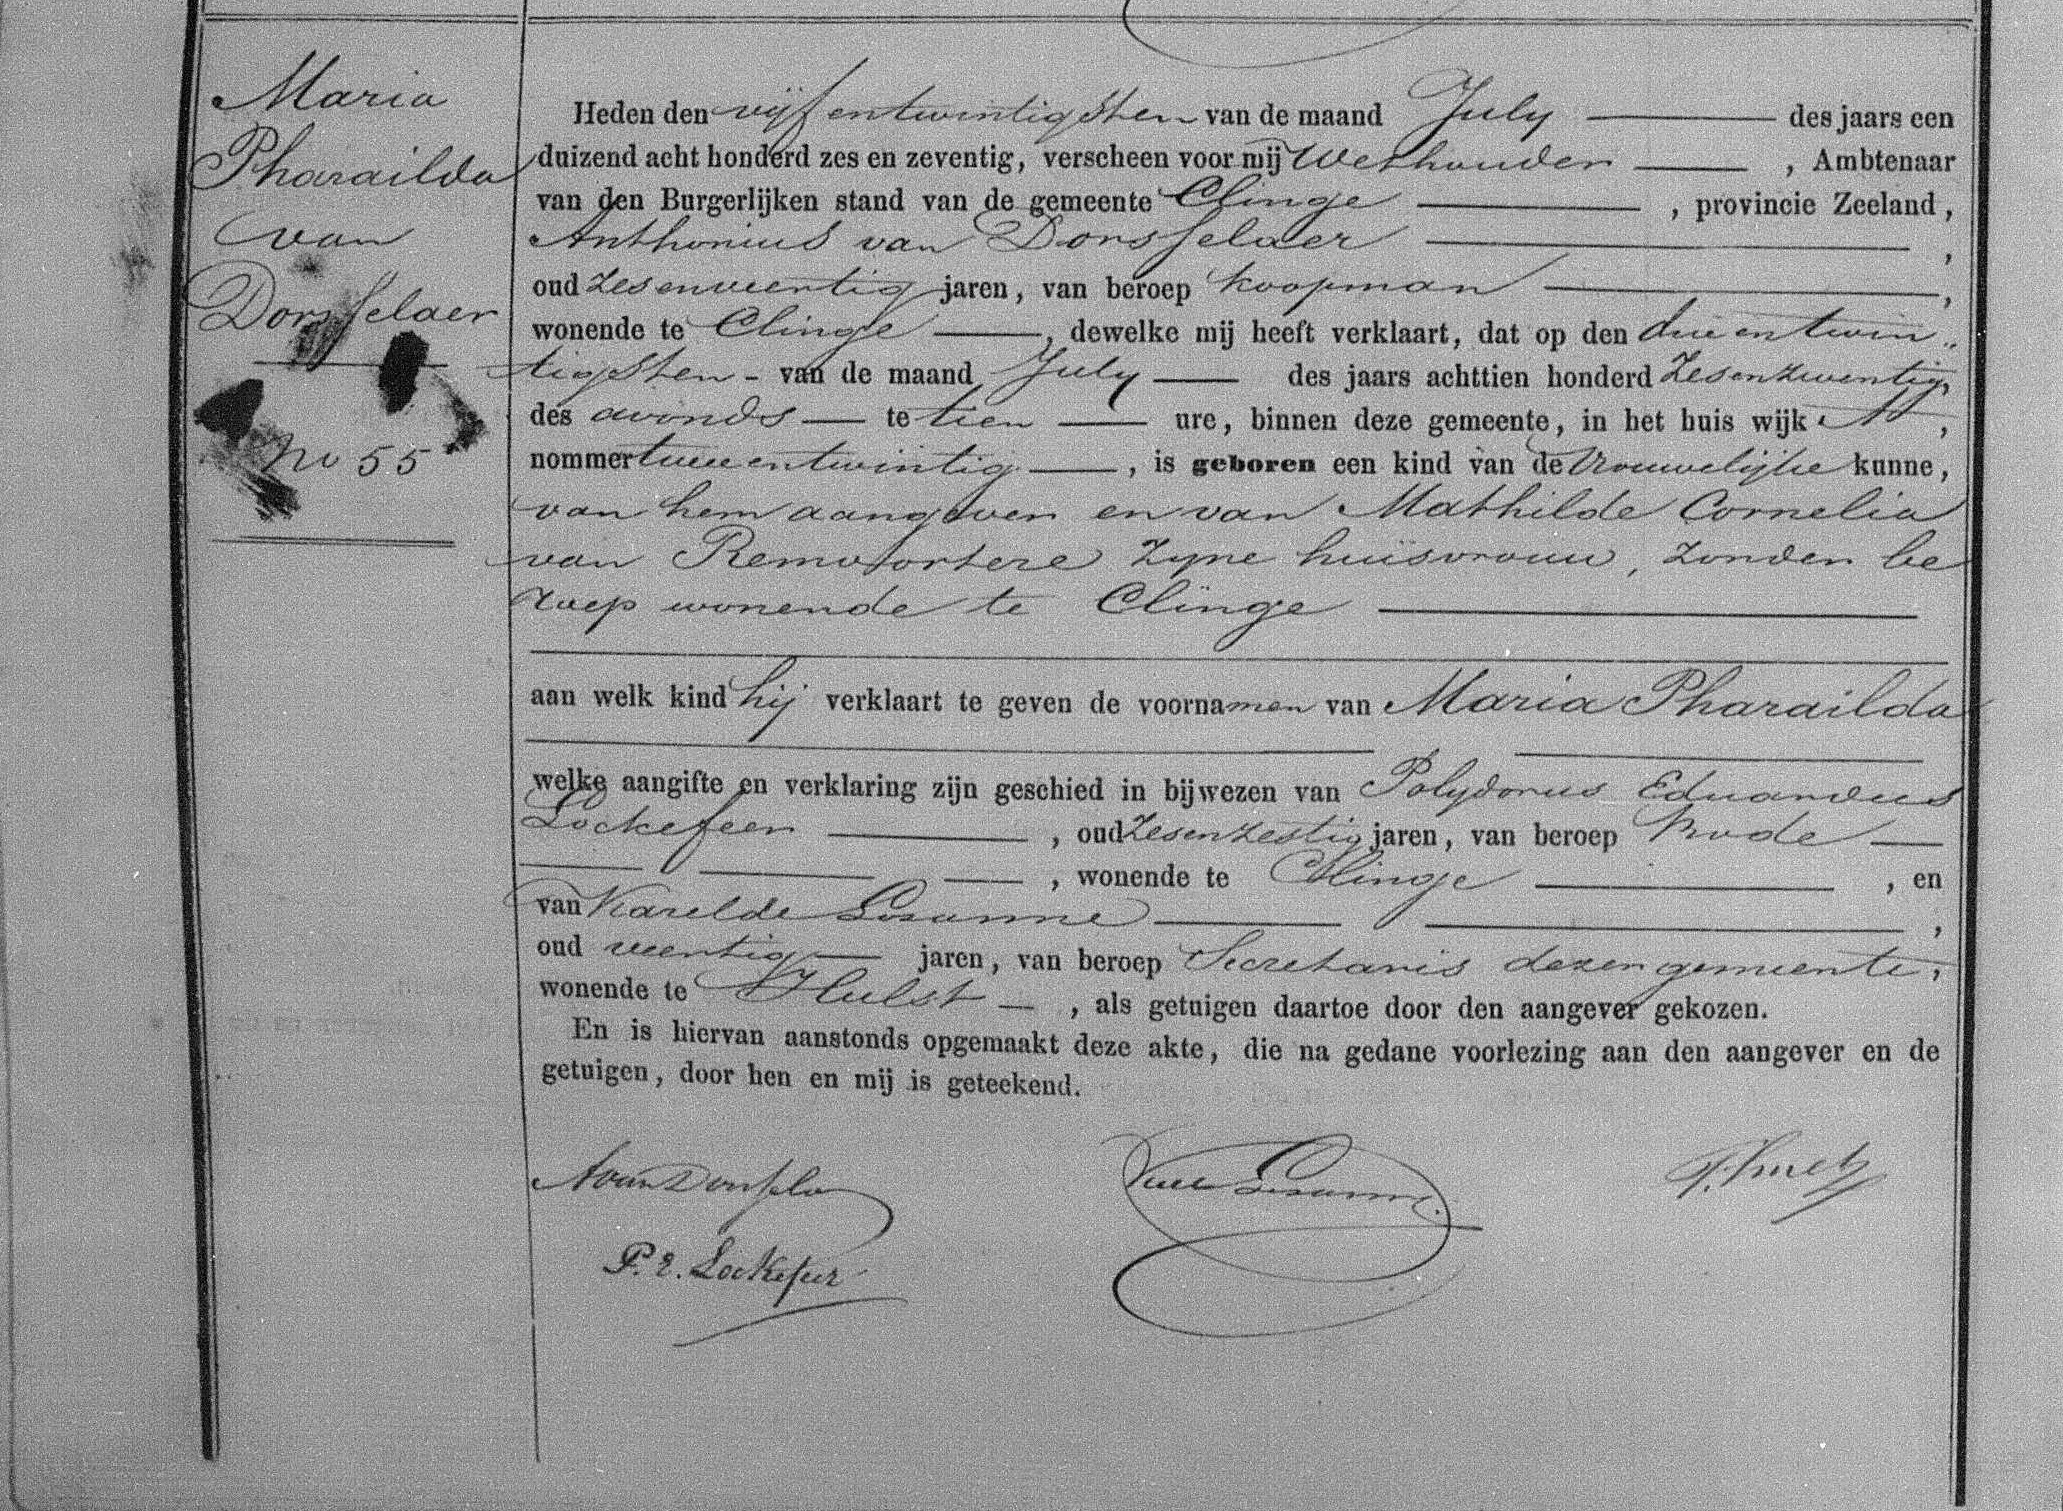 Maria
Pharailda
van
Dorsselaer
No 55
Heden den vijfentwintigsten van de maand July des jaars een
duizend acht honderd zes en zeventig, verscheen voor mij Wethouder , Ambtenaar
van den Burgerlijken stand van de gemeente Clinge , provincie Zeeland,
Anthonius van Dorsselaer ,
oud zesenveertig jaren, van beroep koopman ,
wonende te Clinge , dewelke mij heeft verklaart, dat op den drieentwin„
tigsten - van de maand July des jaars achttien honderd zesenzeventig,
des avonds te tien ure, binnen deze gemeente, in het huis wijk ,
nommer tweeentwintig , is geboren een kind van de vrouwelijke kunne,
van hem aangever en van Mathilde Cornelia
van Remoortere zyne huisvrouw, zonder be
roep wonende te Clinge
aan welk kind hij verklaart te geven de voornamen van Maria Pharailda
welke aangifte en verklaring zijn geschied in bijwezen van Polydorus Eduardus
Lockefeer , oud zesenzestig jaren, van beroep bode
, wonende te Clinge , en
van Karel de Losanne ,
oud veertig jaren, van beroep Secretaris dezer gemeente,
wonende te Hulst , als getuigen daartoe door den aangever gekozen.
En is hiervan aanstonds opgemaakt deze akte, die na gedane voorlezing aan den aangever en de
getuigen, door hen en mij is geteekend.
A van Dorssela
P. E. Lockefeer